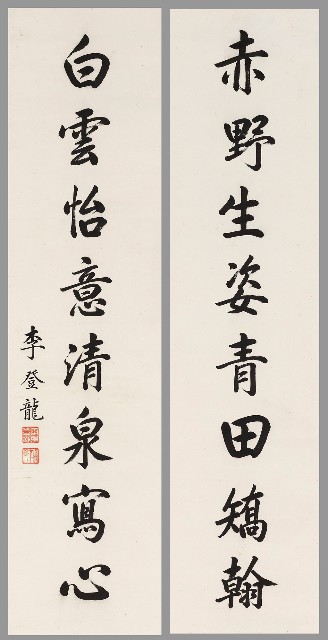 赤野生姿青田矯翰
白雲怡意清泉寫心
李登龍